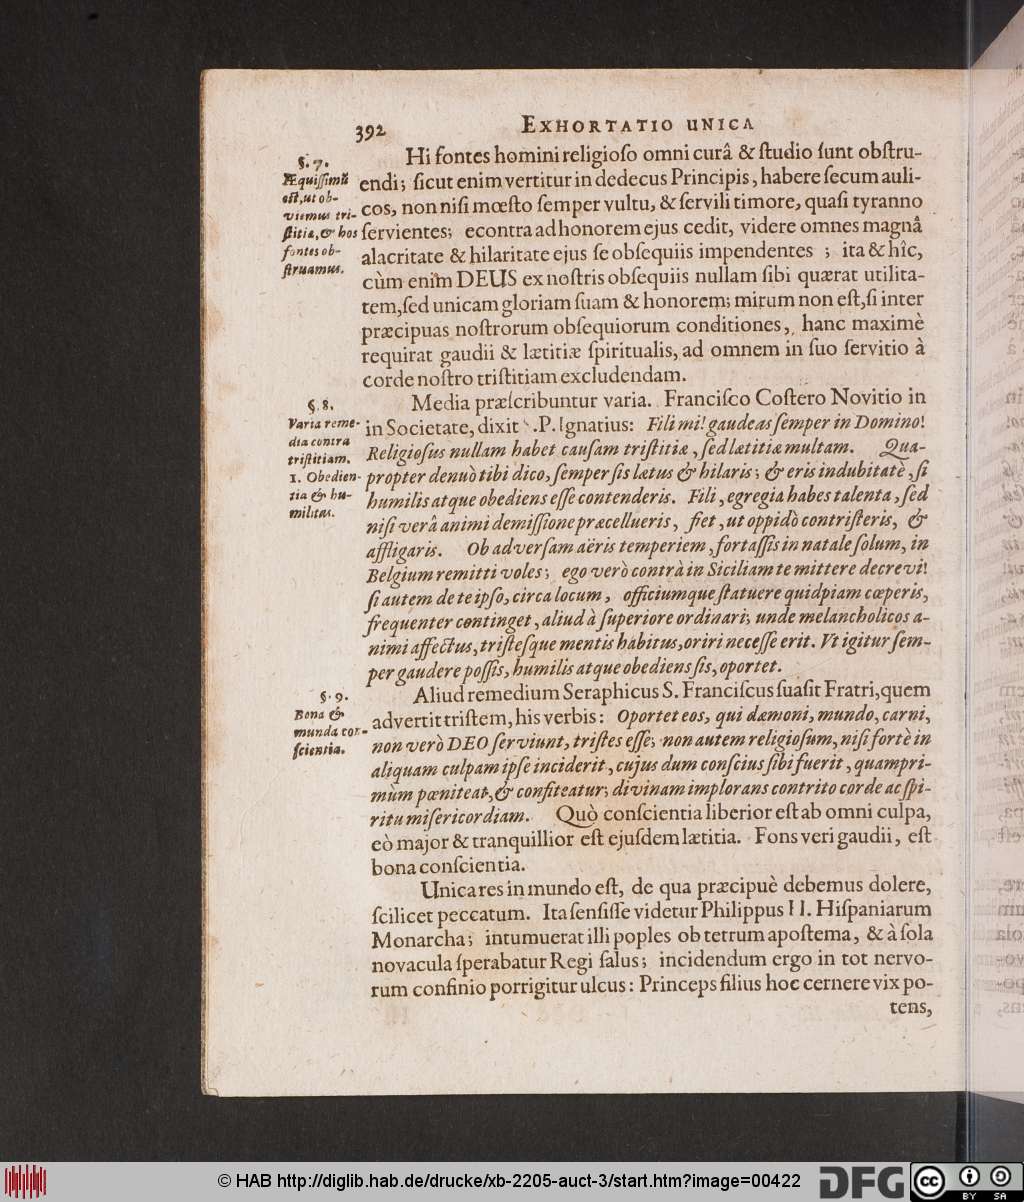 392
EXHORTATIO UNICA
§. 7.
Æquissimũ
est, ut ob-
viemus tri-
stitiæ, & hos
fontes ob-
struamus.
Hi fontes homini religioſo omni curâ & ſtudio ſunt obſtru-
endi; ſicut enim vertitur in dedecus Principis, habere ſecum auli-
cos, non niſi mœſto ſemper vultu, & ſervili timore, quaſi tyranno
ſervientes; econtra ad honorem ejus cedit, videre omnes magnâ
alacritate & hilaritate ejus ſe obſequiis impendentes ; ita & hîc,
cùm enim DEUS ex noſtris obſequiis nullam ſibi quærat utilita-
tem, ſed unicam gloriam ſuam & honorem; mirum non eſt, ſi inter
præcipuas noſtrorum obſequiorum conditiones, hanc maximè
requirat gaudii & lætitiæ ſpiritualis, ad omnem in ſuo ſervitio à
corde noſtro triſtitiam excludendam.
§. 8.
Varia reme-
dia contra
triſtitiam.
1. Obedien-
tia & hu-
militas.
Media præſcribuntur varia. Franciſco Coſtero Novitio in
in Societate, dixit .P. Ignatius: Fili mi! gaudeas ſemper in Domino!
Religioſus nullam habet cauſam triſtitiæ, ſed lætitiæ multam. Qua-
propter denuò tibi dico, ſemper ſis lætus & hilaris; & eris indubitatè, ſi
humilis atque obediens eſſe contenderis. Fili, egregia habes talenta, ſed
niſi verâ animi demiſſione præcellueris, fiet, ut oppidò contriſteris, &
affligaris. Ob adverſam aëris temperiem, fortaſſis in natale ſolum, in
Belgium remitti voles; ego verò contrà in Siciliam te mittere decrevi!
ſi autem de te ipſo, circa locum, officiumque ſtatuere quidpiam cœperis,
frequenter continget, aliud à ſuperiore ordinari; unde melancholicos a-
nimi affectus, triſteſque mentis habitus, oriri neceſſe erit. Vt igitur ſem-
per gaudere poſſis, humilis atque obediens ſis, oportet.
§. 9.
Bona &
munda con-
ſcientia.
Aliud remedium Seraphicus S. Franciſcus ſuaſit Fratri, quem
advertit triſtem, his verbis: Oportet eos, qui dæmoni, mundo, carni,
non verò DEO ſerviunt, triſtes eſſe; non autem religioſum, niſi fortè in
aliquam culpam ipſe inciderit, cujus dum conſcius ſibi fuerit, quampri-
mùm pœniteat, & confiteatur; divinam implorans contrito corde ac ſpi-
ritu miſericordiam. Quò conſcientia liberior eſt ab omni culpa,
eò major & tranquillior eſt ejuſdem lætitia. Fons veri gaudii, eſt
bona conſcientia.
Unica res in mundo eſt, de qua præcipuè debemus dolere,
ſcilicet peccatum. Ita ſenſiſſe videtur Philippus II. Hiſpaniarum
Monarcha; intumuerat illi poples ob tetrum apoſtema, & à ſola
novacula ſperabatur Regi ſalus; incidendum ergo in tot nervo-
rum confinio porrigitur ulcus: Princeps filius hoc cernere vix po-
tens,
© HAB http://diglib.hab.de/drucke/xb-2205-auct-3/start.htm?image=00422
DFG
cc
BY SA